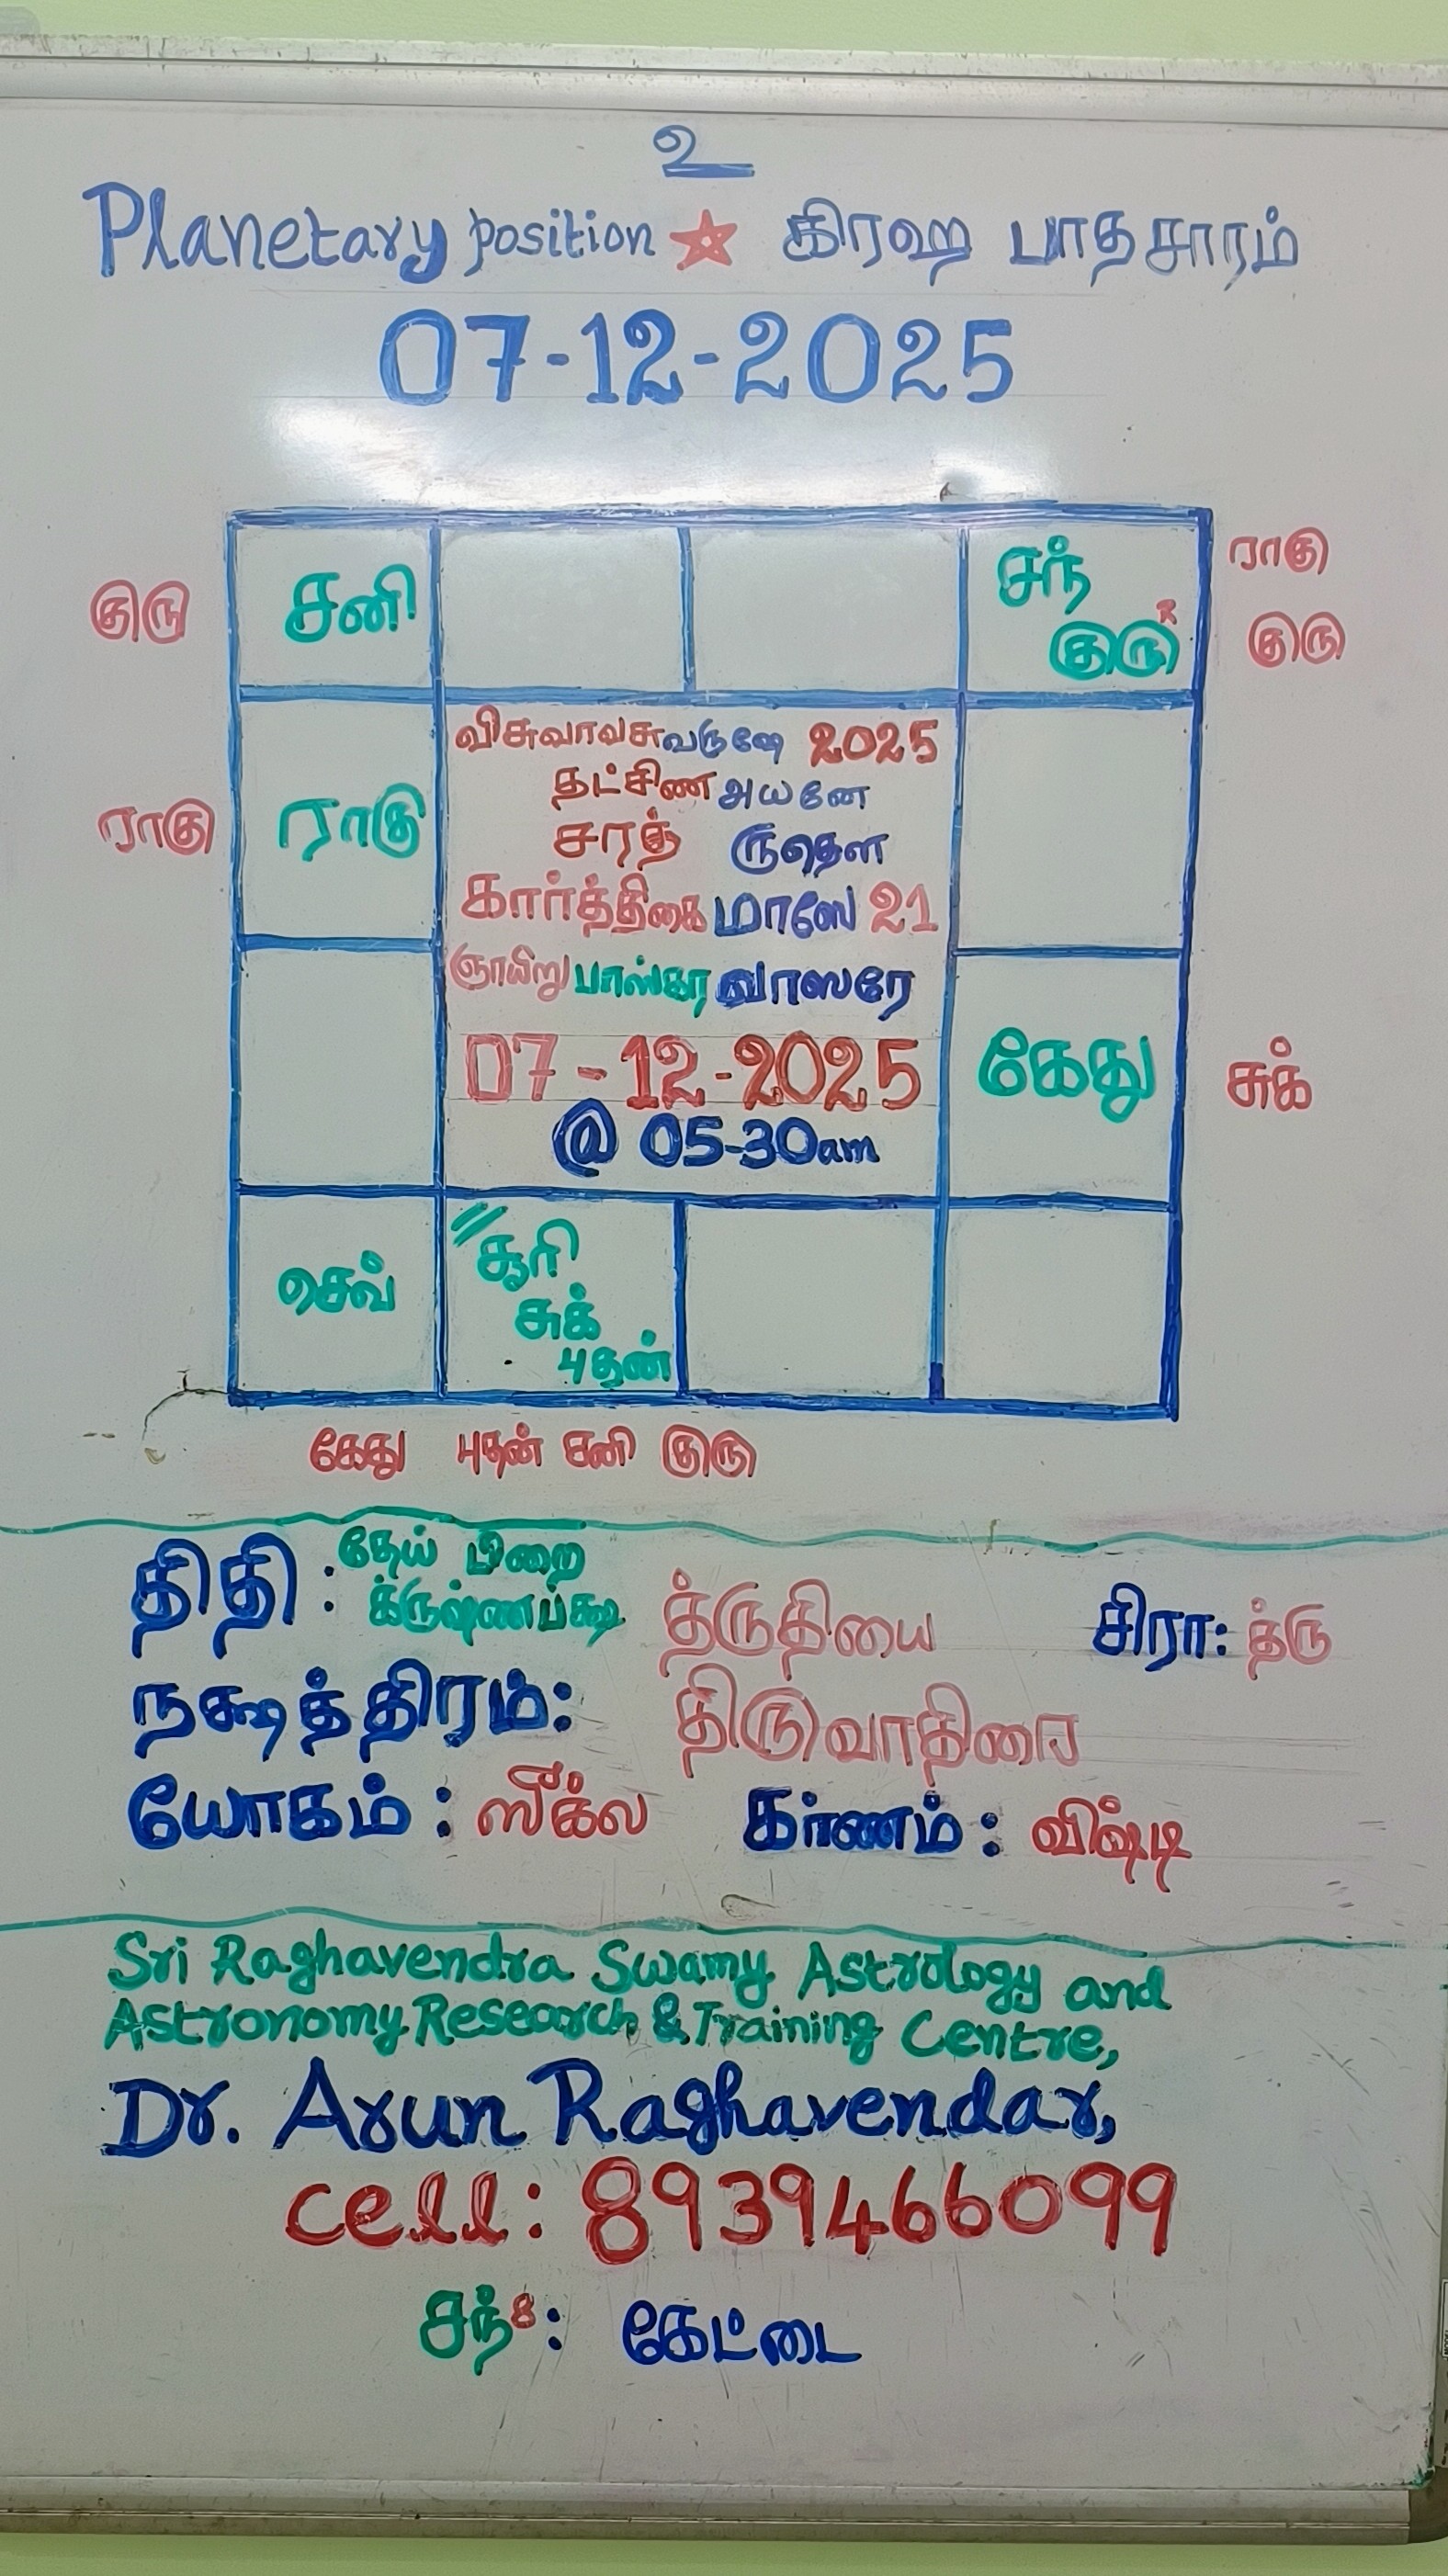 உ
Planetary position ☆ கிரஹ பாதசாரம்
07-12-2025
குரு சனி சந் குருR ராகு குரு
விசுவாவசுவருஷே 2025
தட்சிண அயனே
ராகு ராகு சரத் ருதௌ
கார்த்திகை மாஸே 21
ஞாயிறு பாஸ்கர வாஸரே
07-12-2025 கேது சுக்
@ 05-30am
செவ் சூரி சுக் புதன்
கேது புதன் சனி குரு
திதி: தேய் பிறை க்ருஷ்ணபக்ஷ த்ருதியை சிரா: த்ரு
நக்ஷத்திரம்: திருவாதிரை
யோகம்: ஸீக்ல கர்ணம்: விஷ்டி
Sri Raghavendra Swamy Astrology and
Astronomy Research & Training Centre,
Dr. Arun Raghavendar,
cell: 8939466099
சந்8: கேட்டை